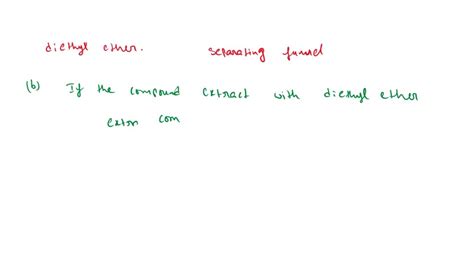 diethyl ether. separating funnel
(b) If the compound extract with diethyl ether
extrn com